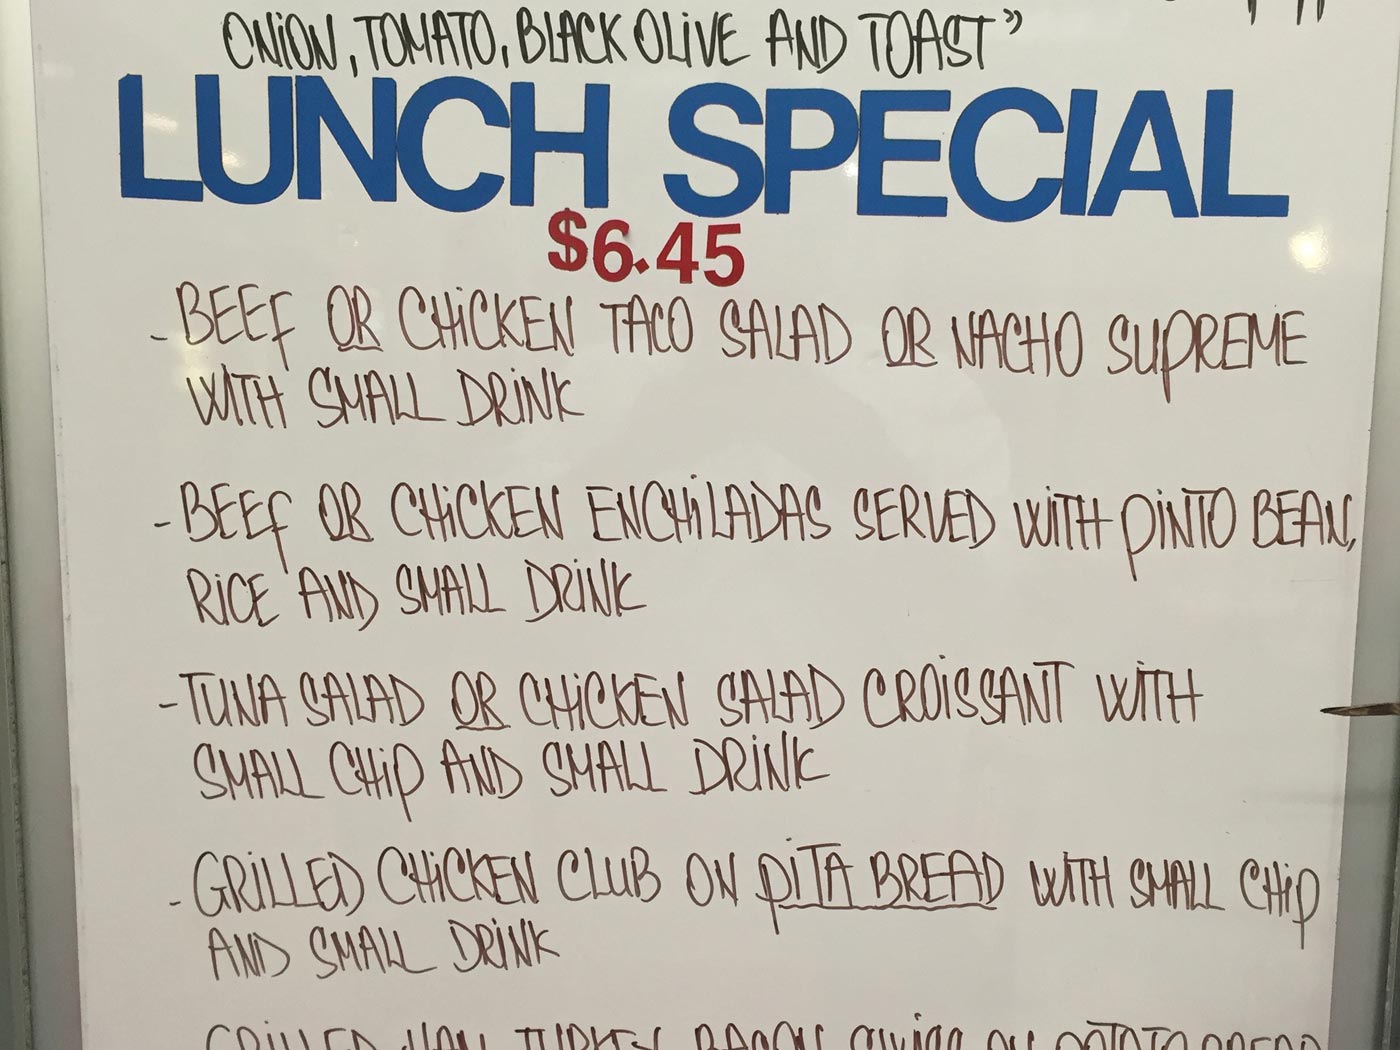 ONION, TOMATO, BLACK OLIVE AND TOAST"
LUNCH SPECIAL
$6.45
- BEEF OR CHICKEN TACO SALAD OR NACHO SUPREME
WITH SMALL DRINK
- BEEF OR CHICKEN ENCHILADAS SERVED WITH PINTO BEAN,
RICE AND SMALL DRINK
- TUNA SALAD OR CHICKEN SALAD CROISSANT WITH
SMALL CHIP AND SMALL DRINK
- GRILLED CHICKEN CLUB ON PITA BREAD WITH SMALL CHIP
AND SMALL DRINK
GRILLED HAM, TURKEY, BACON, SWISS ON POTATO BREAD